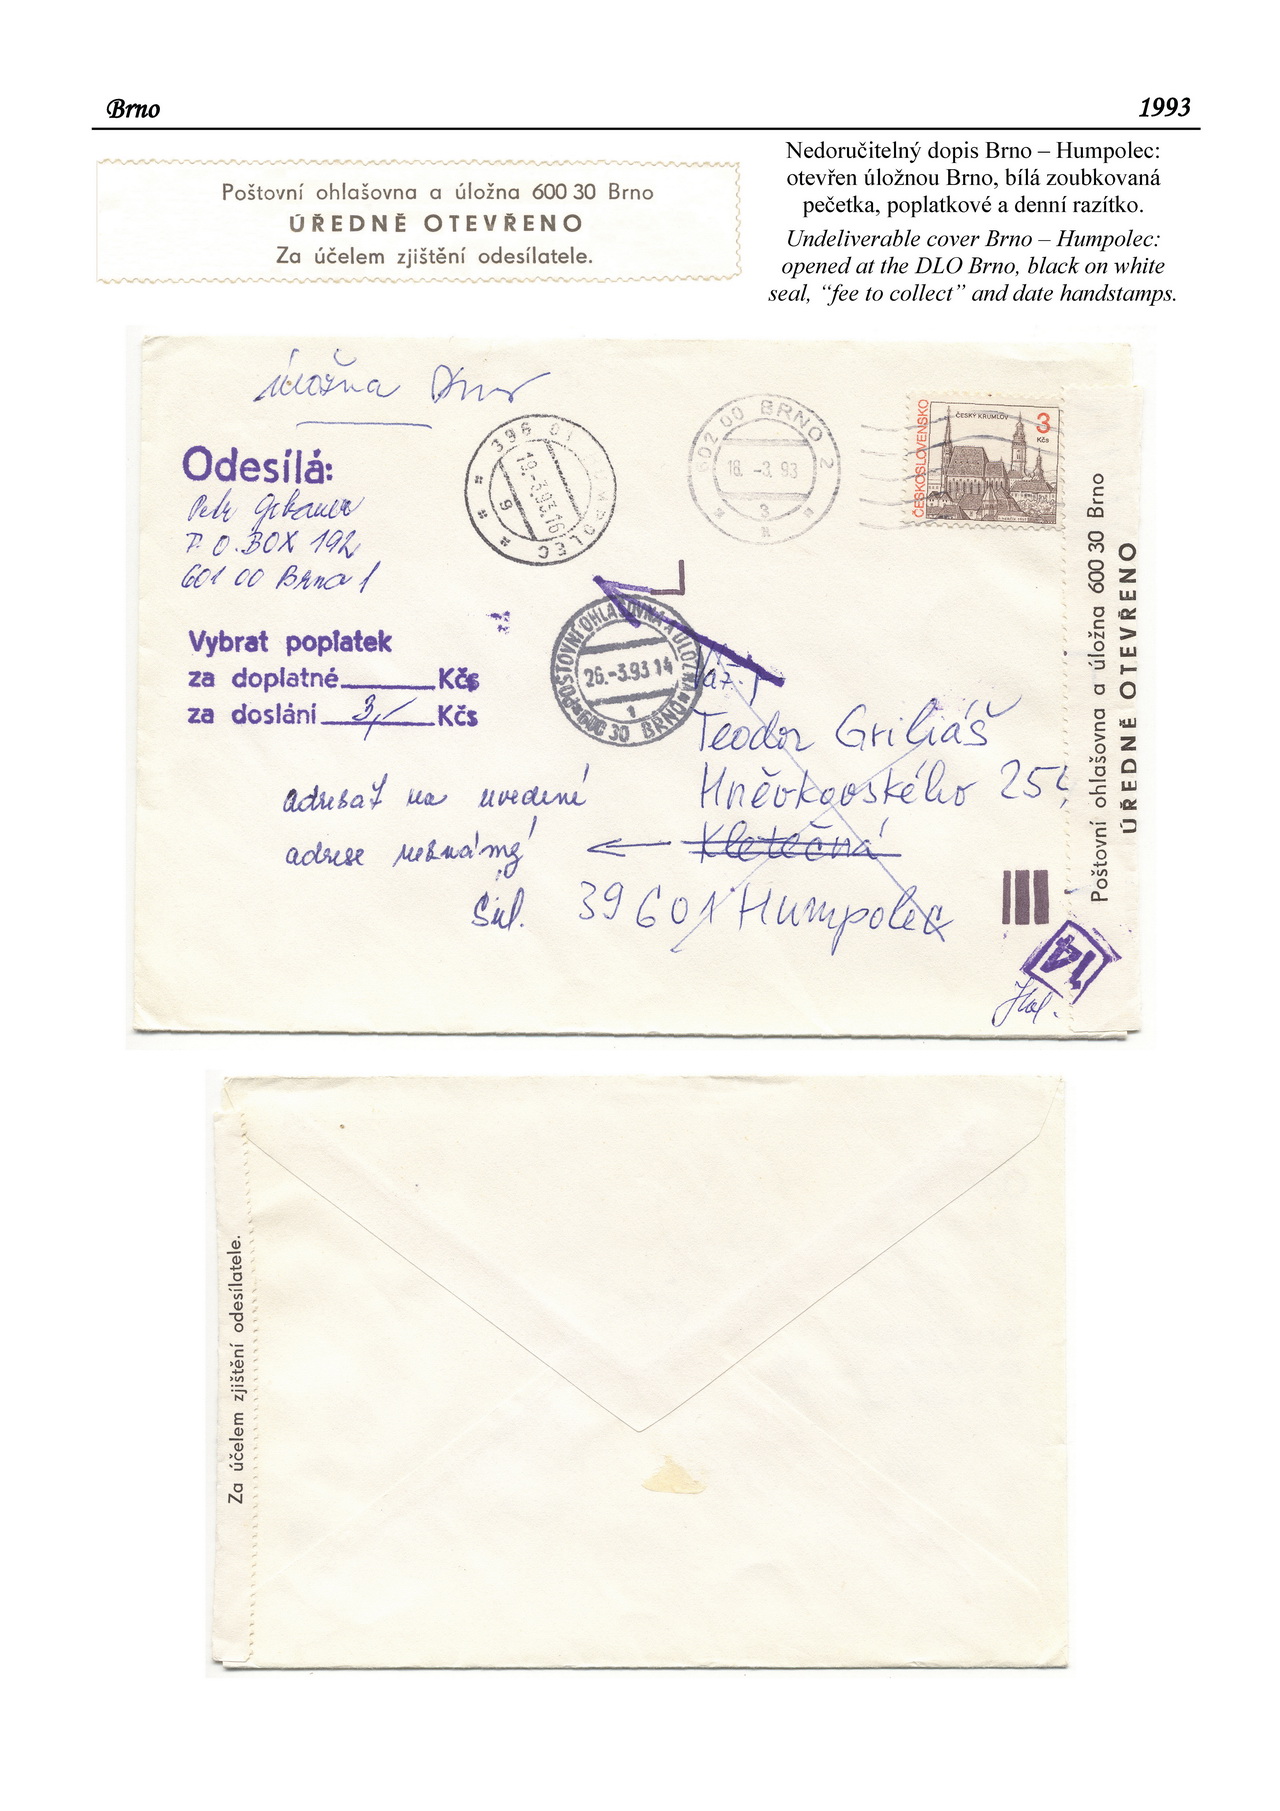 Brno
1993
Poštovní ohlašovna a úložna 600 30 Brno
ÚŘEDNĚ OTEVŘENO
Za účelem zjištění odesílatele.
Nedoručitelný dopis Brno – Humpolec:
otevřen úložnou Brno, bílá zoubkovaná
pečetka, poplatkové a denní razítko.
Undeliverable cover Brno – Humpolec:
opened at the DLO Brno, black on white
seal, “fee to collect” and date handstamps.
úložna Brno
Odesílá:
Petr
P.O.BOX 192
601 00 Brno 1
396 01 HUMPOLEC
19.-3.93.16
9
602 00 BRNO 2
18. -3. 93
3
ČESKOSLOVENSKO
ČESKÝ KRUMLOV
3
Kčs
Vybrat poplatek
za doplatné Kčs
za doslání 3,- Kčs
POŠTOVNÍ OHLAŠOVNA A ÚLOŽNA
26.-3.93 14
1
600 30 BRNO
Váž. p.
Teodor Griliáš
Hněvkovského 25
Kletečná
39601 Humpolec
adresát na uvedené
adrese neznámý
14
Poštovní ohlašovna a úložna 600 30 Brno
ÚŘEDNĚ OTEVŘENO
Za účelem zjištění odesílatele.